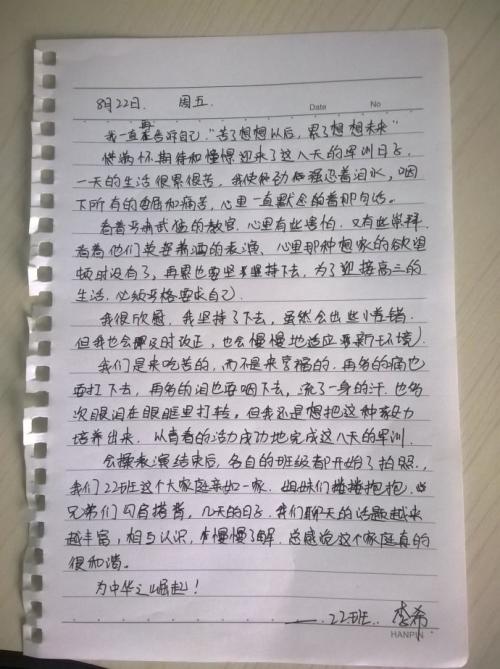 8月22日. 周五.
Date No
我一直再告诉自己,"苦了想想以后,累了想想未来"
满怀期待和憧憬迎来了这八天的军训日子.
一天的生活很累很苦,我使劲强忍着泪水,咽
下所有的和痛苦,心里一直默念的着那句话。
看着勇猛武猛的教官,心里有些害怕.又有些崇拜.
看着他们英姿潇洒的表演、心里那种想家的欲望
顿时没有了,再累也要坚持下去,为了迎接高三的
生活.必须严格要求自己.
我很欣慰.我坚持了下去,虽然会出些小差错.
但我也会及时改正,也会慢慢地适应新环境).
我们是来吃苦的,而不是来享福的.再多的痛也
要扛下去,再多的泪也要咽下去,流了一身的汗.也多
次眼泪在眼眶里打转,但我还是想把这种毅力
培养出来.以青春的活力成功地完成这八天的军训.
会操表演结束后,各自的班级都开始了拍照.,
我们22班这个大家庭亲如一家.姐妹们搂搂抱抱.
兄弟们勾肩搭背,几天的日子.我们聊天的话题越来
越丰富,相互认识,慢慢了解.总感觉这个家庭真的
很和谐。
为中华之崛起!
——.22班.. 李希
HANPIN